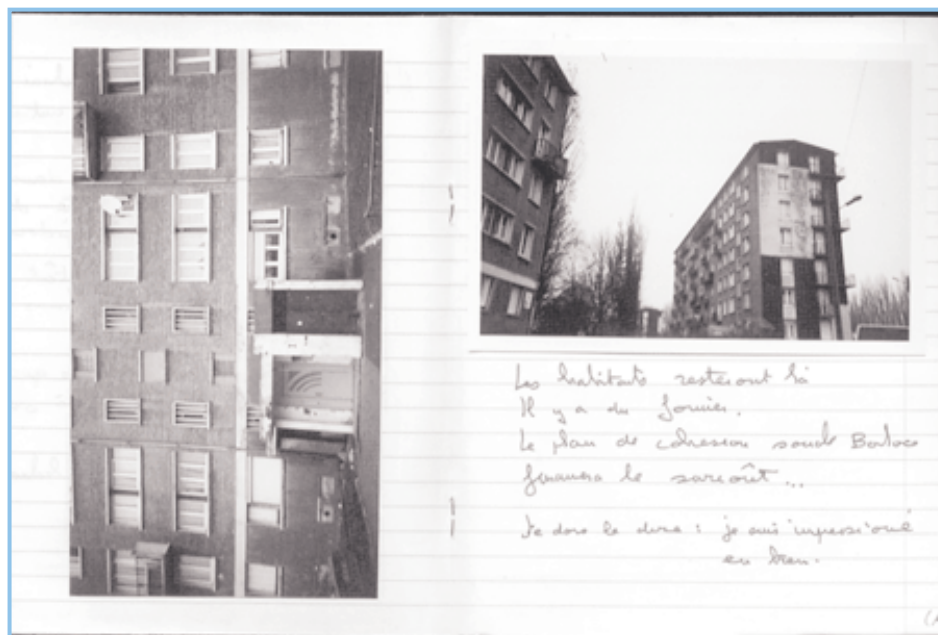 Les habitants resteront là
Il y a du
Le plan de cohésion sociale Borloo
financera le surcoût ...
Je dois le dire : je suis impressionné
en bien.